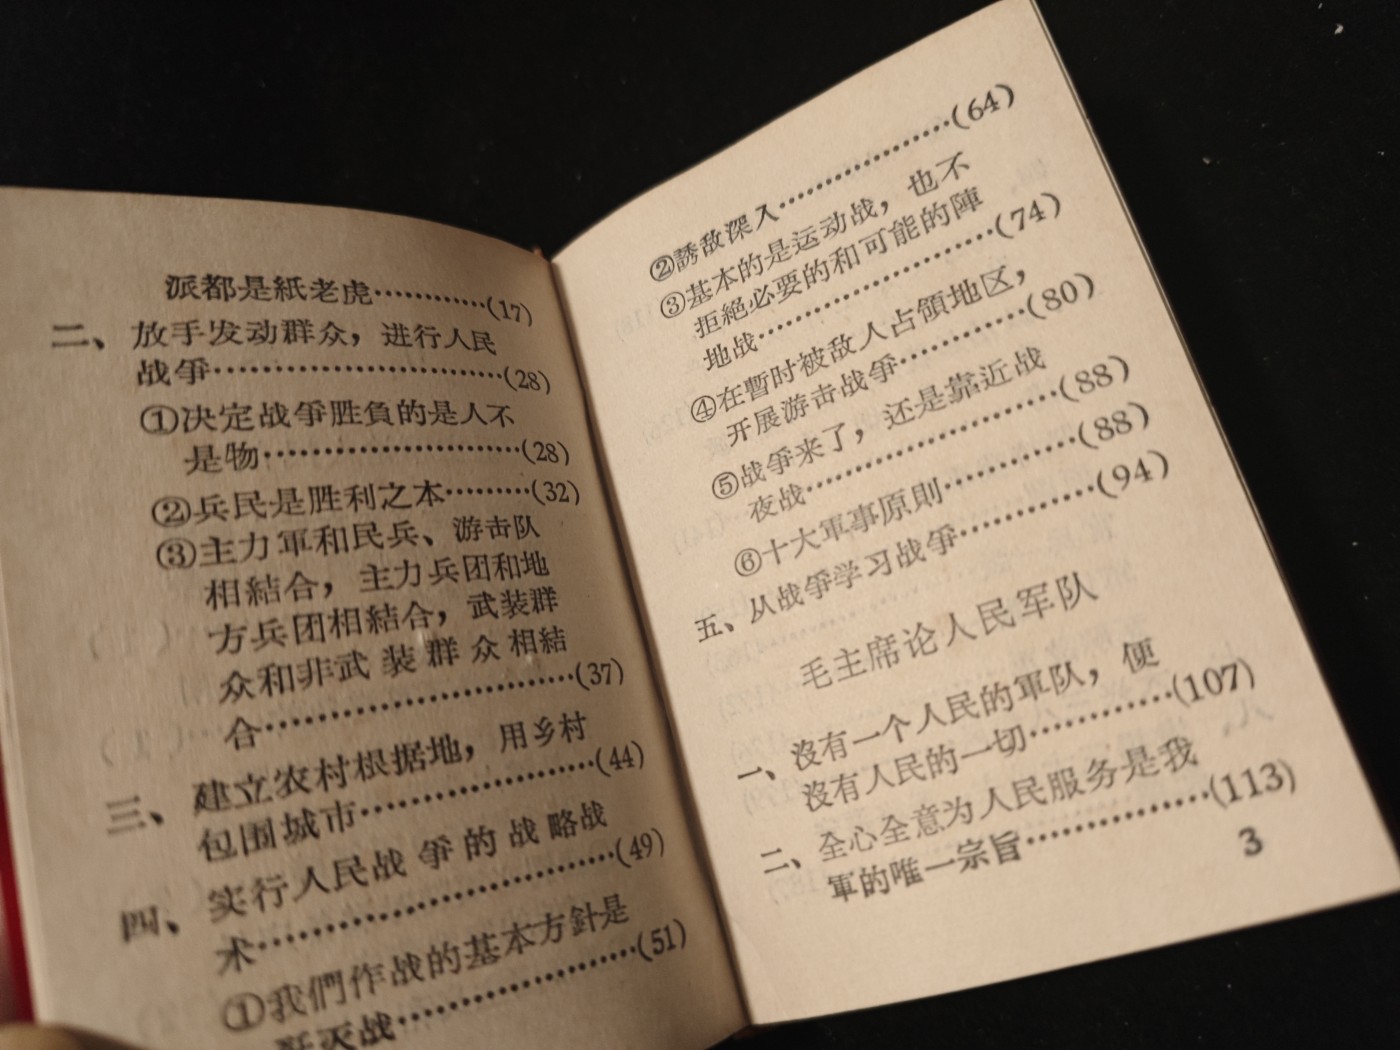 派都是紙老虎…………(17)
二、放手发动群众，进行人民
战爭…………………………(28)
①决定战爭胜負的是人不
是物………………………(28)
②兵民是胜利之本………(32)
③主力軍和民兵、游击队
相結合，主力兵团和地
方兵团相結合，武装群
众和非武装群众相結
合……………………………(37)
三、建立农村根据地，用乡村
包围城市……………………(44)
四、实行人民战爭的战略战
术………………………………(49)
①我們作战的基本方針是
歼灭战………………………(51)
②誘敌深入………………(64)
③基本的是运动战，也不
拒絕必要的和可能的陣
地战………………………(74)
④在暫时被敌人占領地区，
开展游击战爭…………(80)
⑤战爭来了，还是靠近战
夜战…………………………(88)
⑥十大軍事原則…………(88)
五、从战爭学习战爭…………(94)
毛主席论人民军队
一、沒有一个人民的軍队，便
沒有人民的一切…………(107)
二、全心全意为人民服务是我
軍的唯一宗旨……………(113)
3